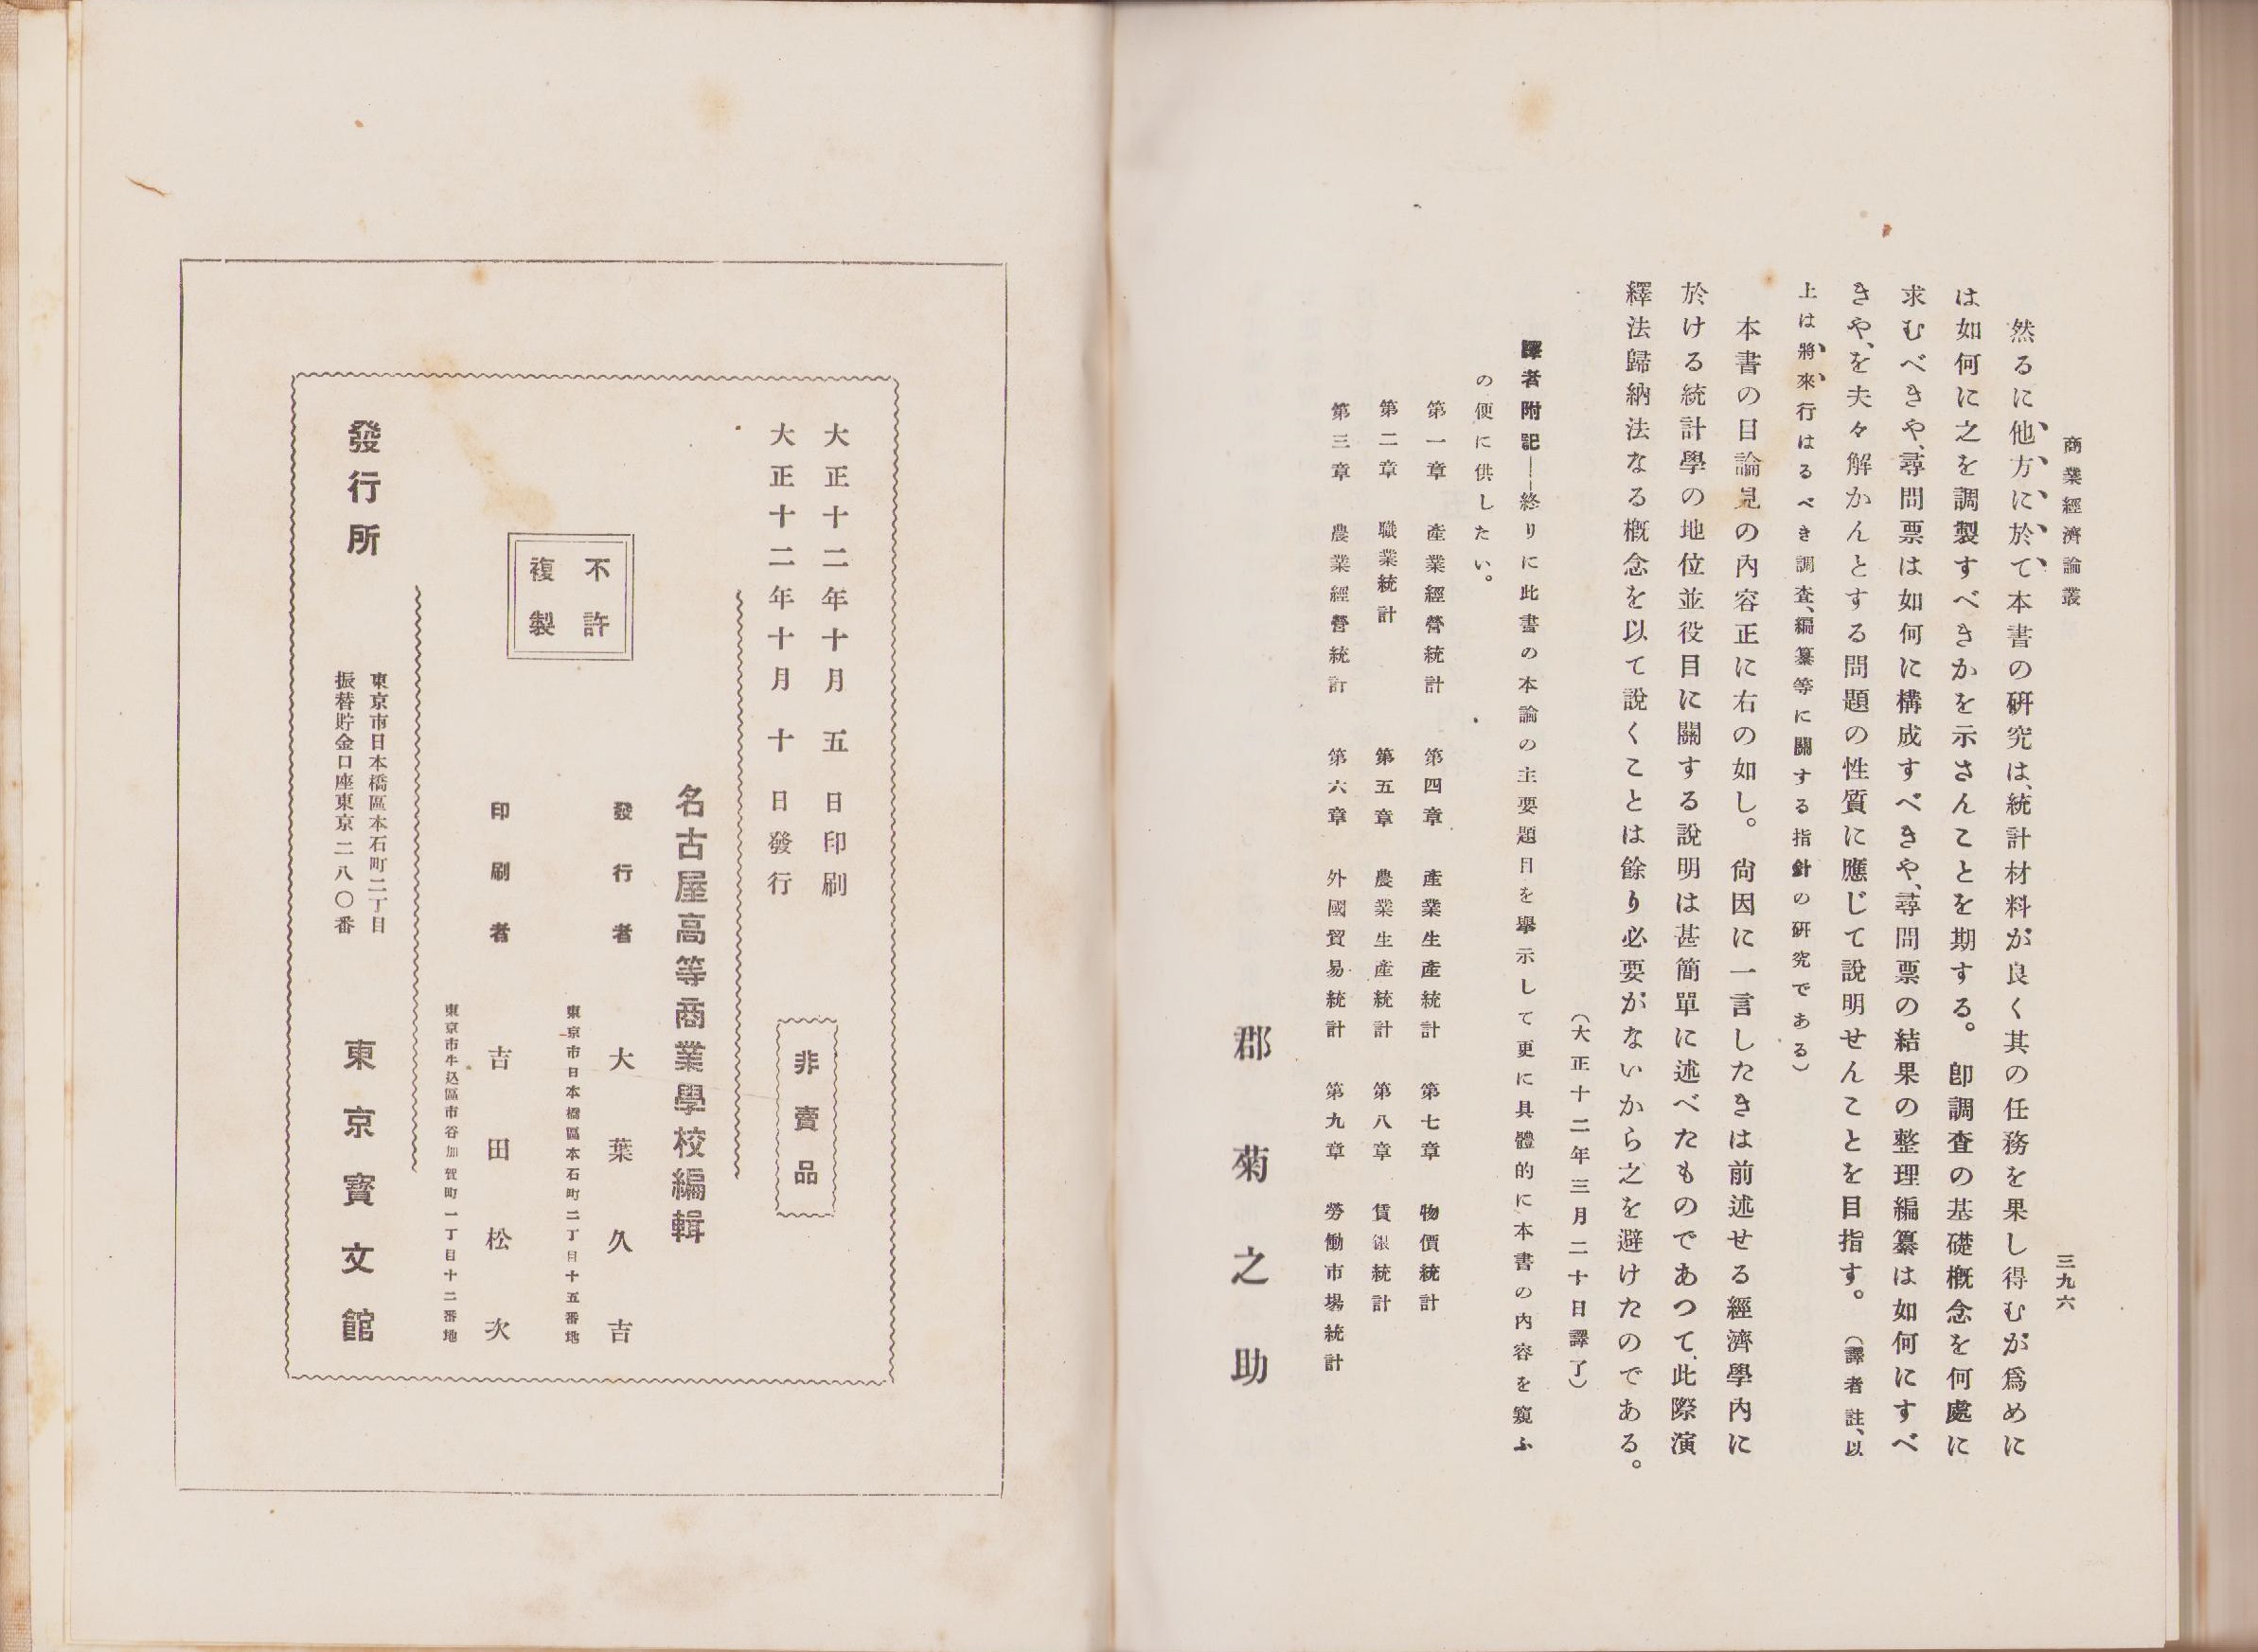 商業經濟論叢
三九六
然るに、他方に於て本書の研究は、統計材料が良く其の任務を果し得むが爲めに
は如何に之を調製すべきかを示さんことを期する。卽調査の基礎槪念を何處に
求むべきや、尋問票は如何に構成すべきや、尋問票の結果の整理編纂は如何にすべ
きや、を夫々解かんとする問題の性質に應じて說明せんことを目指す。（譯者註、以
上は將來行はるべき調査、編纂等に關する指針の硏究である）
本書の目論見の內容正に右の如し。尙因に一言したきは前述せる經濟學內に
於ける統計學の地位並役目に關する說明は甚簡單に述べたものであつて、此際演
繹法歸納法なる槪念を以て說くことは餘り必要がないから之を避けたのである。
（大正十二年三月二十日譯了）
譯者附記——終りに此書の本論の主要題目を擧示して更に具體的に本書の內容を窺ふ
の便に供したい。
第一章　產業經營統計　第四章　產業生產統計　第七章　物價統計
第二章　職業統計　第五章　農業生產統計　第八章　賃銀統計
第三章　農業經營統計　第六章　外國貿易統計　第九章　勞働市場統計
郡菊之助
大正十二年十月五日印刷
大正十二年十月十日發行
非賣品
名古屋高等商業學校編輯
發行者　大葉久吉
東京市日本橋區本石町二丁目十五番地
不許
複製
印刷者　吉田松次
東京市牛込區市谷加賀町一丁目十二番地
發行所
東京市日本橋區本石町二丁目
振替貯金口座東京二八〇番
東京寳文館